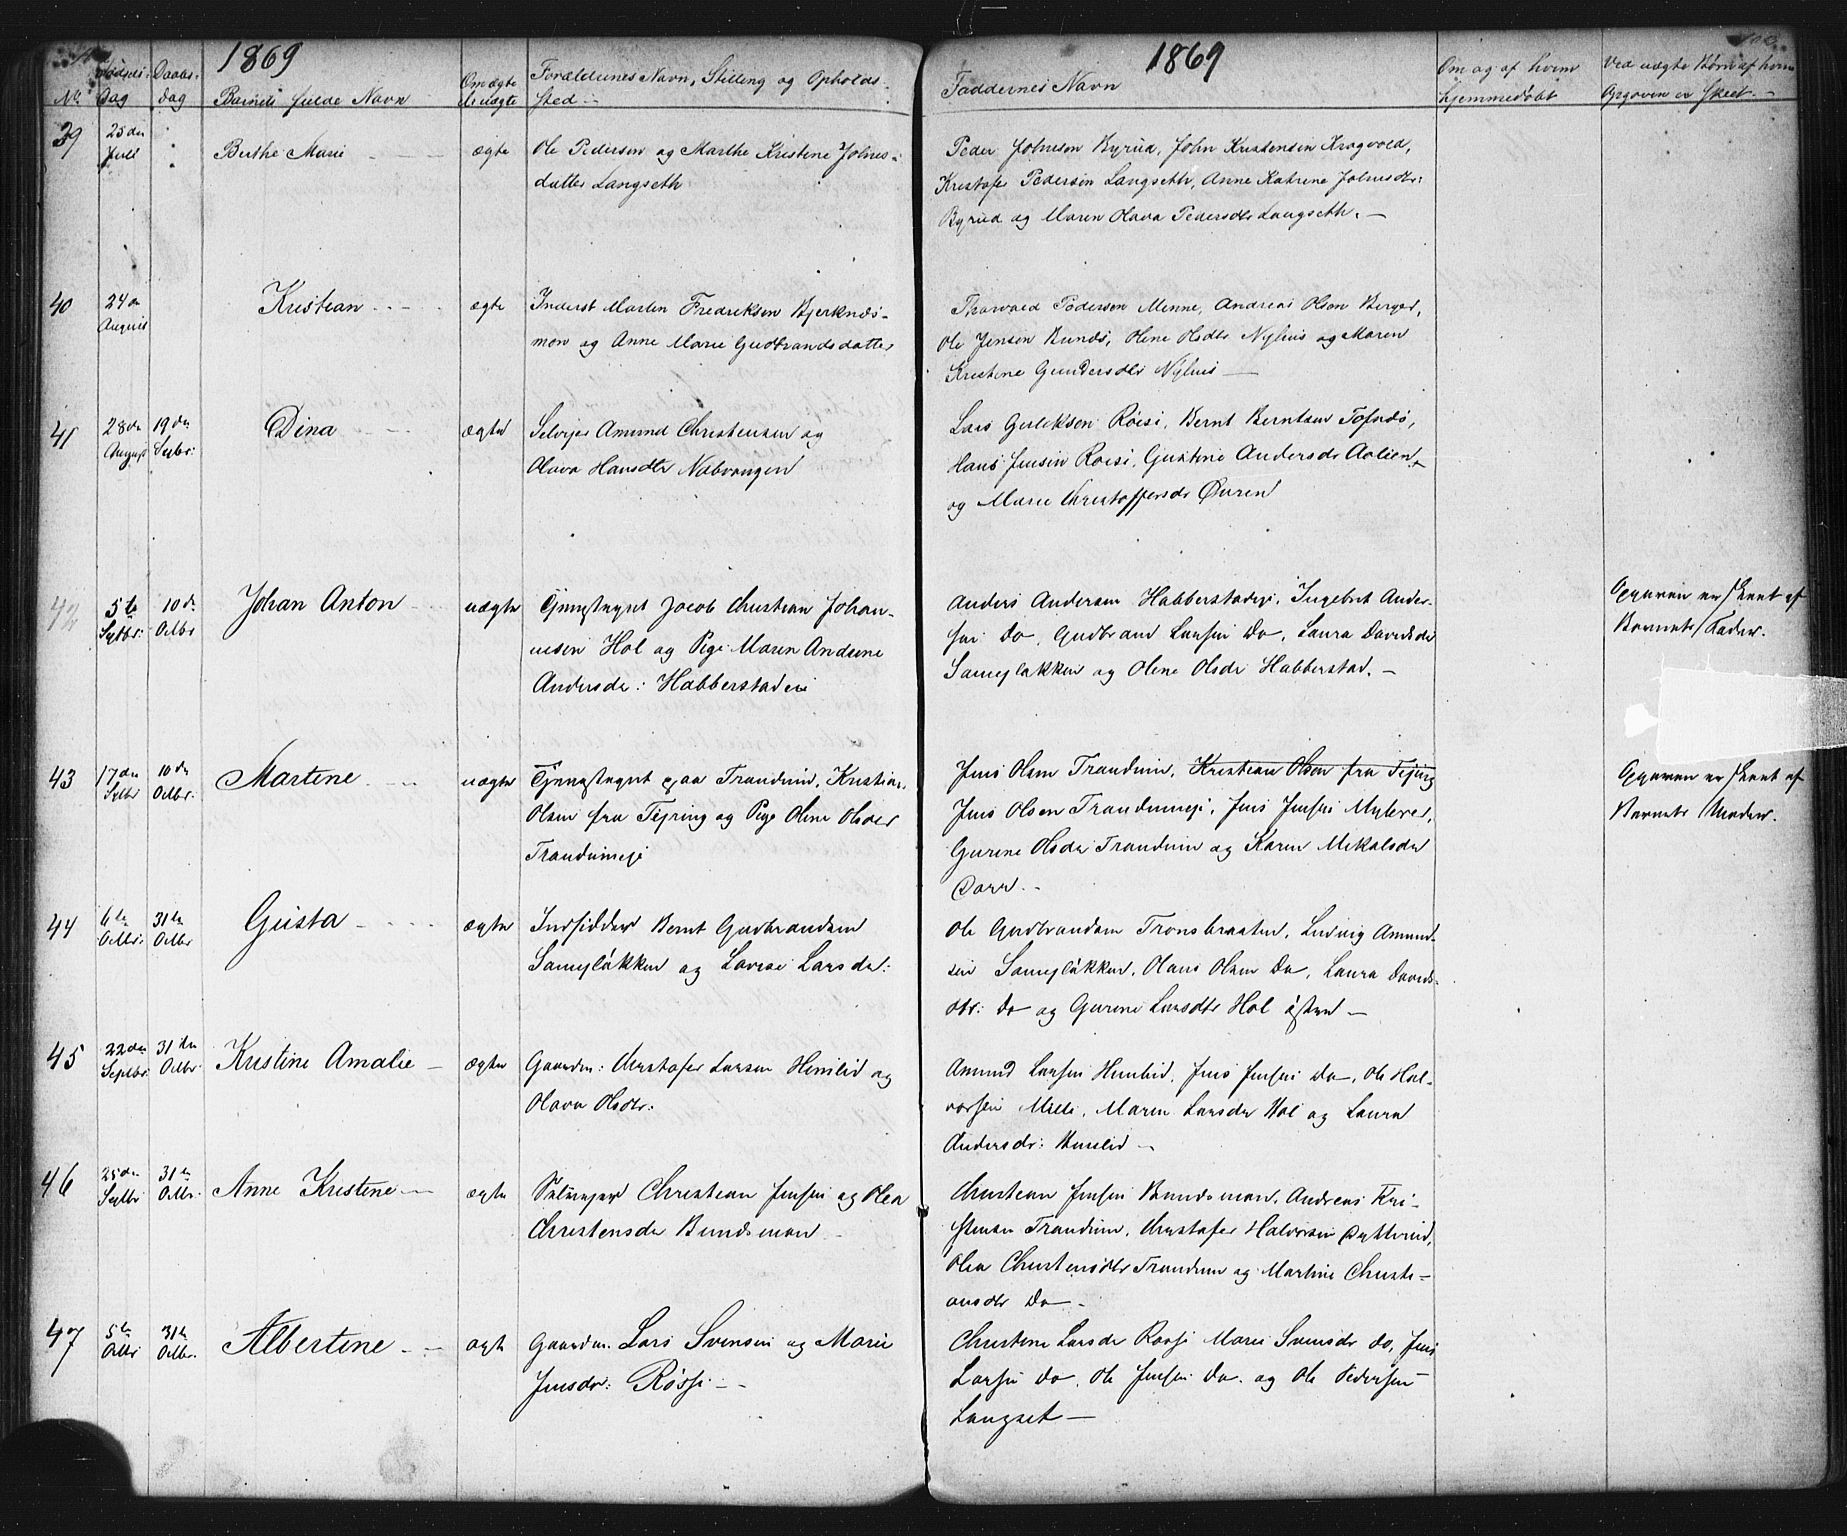 1869
No. Fødsels- Dag
Daabs- dag
Barnets fulde Navn
Om ægte ell. uægte
Forældrenes Navn, Stilling og Opholds-
sted
39 25de Juli Berthe Marie ægte Ole Pedersen og Marthe Kristine Johnes-
datter Langseth
40 24de August Kristian ægte Inderst Martin Fredriksen Bjerknæs-
moen og Anne Marie Gudbrandsdatter
41 28de August 19de Septbr: Dina ægte Selvejer Amund Christensen og
Olava Hansdtr Nabvangen
42 5te Septbr: 10de Octbr. Johan Anton uægte Tjenestegut Jacob Christian Johan-
nesen Hol og Pige Maren Andrine
Andersdr: Habberstadeie
43 17de Septbr 10de Octbr. Martine uægte Tjenestegut paa Trandum, Kristian
Olsen fra Tejring og Pige Oline Olsdtr
Trandumeje
44 6te Octbr. 31te Octbr Gusta ægte Indsidder Bernt Gudbrandsen
Samejløkken og Lovise Larsdr:
45 22de Septbr. 31te Octbr. Kristine Amalie ægte Gaardm: Christofer Larsen Himlid og
Olava Olsdtr:
46 25de Septbr 31te Octbr. Anne Kristine ægte Selveejer Christian Jensen og Olea
Christensdr Bundsmoen
47 5te Octbr 31te Octbr. Albertine ægte Gaardm. Lars Svensen og Marie
Jensdr: Røise
1869
Faddernes Navn
Om og af hvem
hjemmedøbt
Ved uægte Børn af hvem
Opgaven er skeet.
Peder Johnson Byrud, John Kristensen Kragvold,
Kristofer Pedersen Langseth, Anne Katrine Johnsdtr:
Byrud og Maren Olava Pedersdtr Langseth.
Thorvald Pedersen Menne, Andreas Olson Berger,
Ole Jensen Bundes, Olene Olsdtr Nyhus og Maren
Kristine Gundersdtr Nyhus
Lars Gulikson Røise, Bernt Berntsen Tofsnæs,
Hans Jensen Roise, Gustine Andersdr Aalien
og Marie Christoffersdr Øuren
Anders Andersen Habberstadeje, Ingebret Ander-
sen Do, Gudbrand Larsen Do, Laura Davidsdr
Samejløkken og Olene Olsdr Habberstad.
Opgaven er skeet af
Barnets Fader.
Jens Olsen Trandum, Kristian Olsen fra Tejring
Jens Olsen Trandumeje, Jens Jensen Myhrer,
Gurine Olsdr Trandum og Karen Mikalsdr
Dorr.
Opgaven er skeet af
Barnets Moder.
Ole Gudbrandsen Tronsbraaten, Ludvig Amund-
sen Samejløkken, Hans Olsen Do, Laura Davids-
dtr: Do og Gurine Larsdtr Hol østre
Amund Larsen Himlid, Jens Jensen Do, Ole Hal-
vorsen Melle, Maren Larsdr Hol og Laura
Andersdr: Himlid
Christian Jensen Bundsmoen, Andreas Kri-
stensen Trandum, Christofer Halvorsen Dytterud,
Olea Christensdtr Trandum og Martine Christi-
ansdtr Do
Christine Larsdr Røise Marie Svensdr do, Jens
Larsen do, Ole Jensen do. og Ole Pedersen
Langset